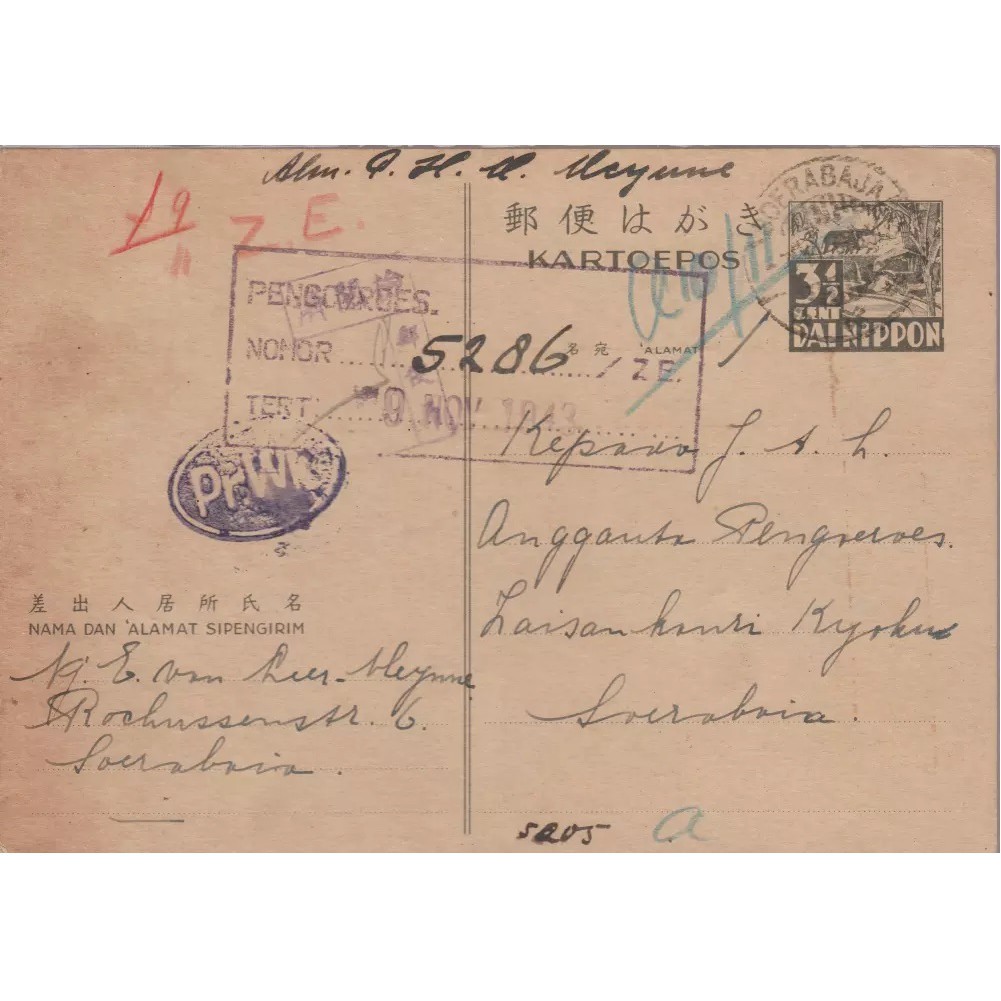 Alm. P. H. A. Meynne
19
11
Z.E.
郵便はがき
KARTOEPOS
SOERABAJA
3½
CENT
DAI NIPPON
PENGOEROES.
NOMOR 5286 / ZE.
名宛 'ALAMAT
TERT: 9 NOV 1943
10/11
Kepada J. A. h.
Anggauta Pengoeroes.
Zaisan kanri Kyoku
Soerabaia.
差出人居所氏名
NAMA DAN 'ALAMAT SIPENGIRIM
Nj. E. van Leer-Meynne
Rochussenstr. 6.
Soerabaia.
5205 a